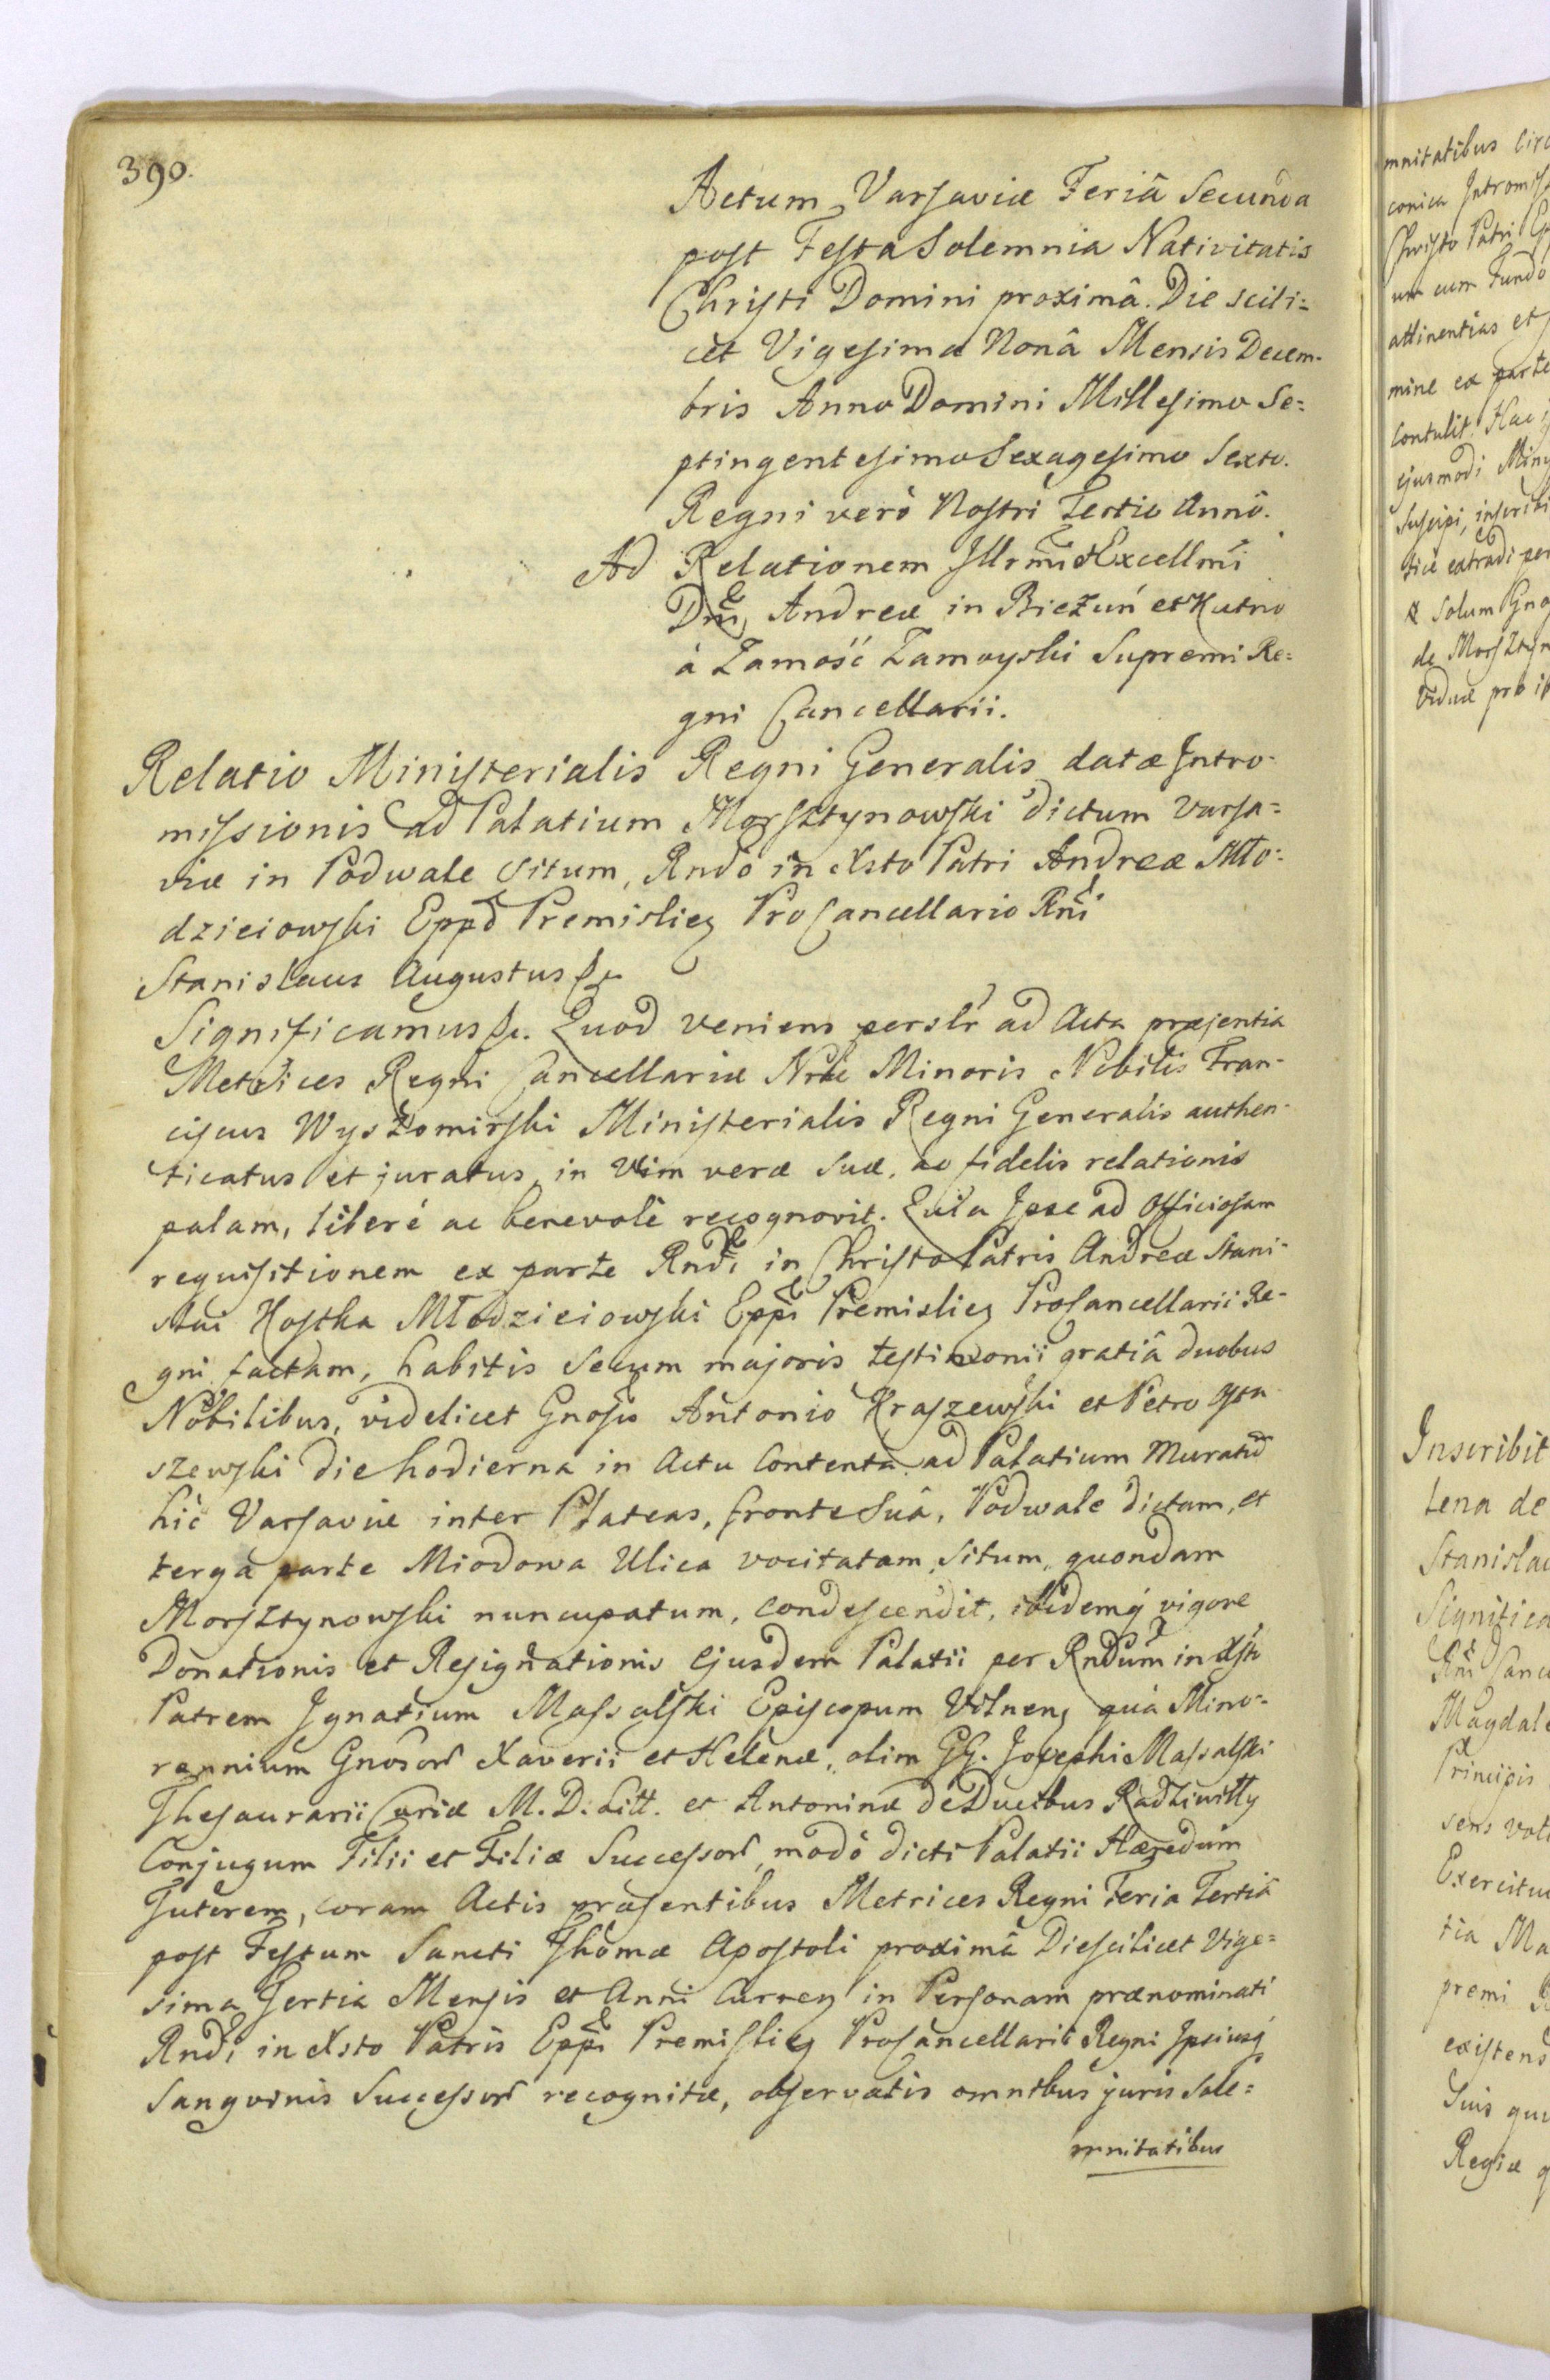 390.
Actum Varsaviæ Feriâ Secunda
post Festa Solemnia Nativitatis
Christi Domini proximâ. Die scili=
cet Vigesima Nonâ Mensis Decem-
bris Anno Domini Millesimo Se=
ptingentesimo Sexagesimo Sexto.
Regni verò Nostri Tertio Annô.
Ad Relationem Illrmi & Excellmi
Dni, Andreæ in Bieżuń et Kutno
à Zamość Zamoyski Supremi Re=
gni Cancellarii.
Relatio Ministerialis Regni Generalis datæ Intro-
missionis ad Palatium Morsztynowski dictum Varsa=
viæ in Podwale situm, Rndo in Xsto Patri Andreæ Mło-
dzieiowski Eppo Premislien ProCancellario Rni
Stanislaus Augustus &c
Significamus &c. Quod veniens perslr ad Acta præsentia
Metrices Regni Cancellariæ Nræ Minoris Nobilis Fran-
ciscus Wyszomirski Ministerialis Regni Generalis authen-
ticatus et juratus, in Vim veræ suæ, ac fidelis relationis
palam, liberé ac benevolè recognovit. Quia Ipse ad Officiosam
requisitionem ex parte Rndi in Christo Patris Andreæ Stani-
slai Kostka Młodzieiowski Eppi Premislien ProCancellarii Re-
gni factam, habitis secum majoris testimonii gratiâ duobus
Nobilibus, videlicet Gnosis Antonio Kraszewski et Petro Osta
szewski die hodierna in Actu Contenta ad Palatium Muratum
hic Varsaviæ inter Plateas, fronte suâ, Podwale dictam, et
terga parte Miodowa Ulica vocitatam, situm, quondam
Morsztynowski nuncupatum, condescendit, ibidemq vigore
Donationis et Resignationis ejusdem Palatii per Rndum in Xsto
Patrem Ignatium Massalski Episcopum Vilnens quà Mino-
rennium Gnosor Xaverii et Helenæ, olim GG. Josephi Massalski
Thesaurarii Curiæ M. D. Litt. et Antoninæ de Ducibus Radziwiłły
Conjugum Filii et Filiæ Successor, modò dicti Palatii Hæredum
Tutorem, coram Actis præsentibus Metrices Regni Feria Tertiâ
post Festum Sancti Thomæ Apostoli proximâ Die scilicet Vige=
sima Tertia Mensis et Anni Curren in Personam prænominati
Rndi in Xsto Patris Eppi Premislien ProCancellarii Regni Ipsiusq
Sangvinis Successor recognitæ, observatis omnibus juris sole=
mnitatibus
mnitatibus
conica
Christo Patri
um cum Fundo
attinentias et
mine ex parte
Contulit.
ejusmodi
Suscipi,
extradi per
& solum
de
Viduæ pro
Inscribit
tena de
Stanislau
Significa
Rni Canc
Magdale
Principis
sens
Exercitu
tia Ma
premi R
existens
Suis
Regiæ